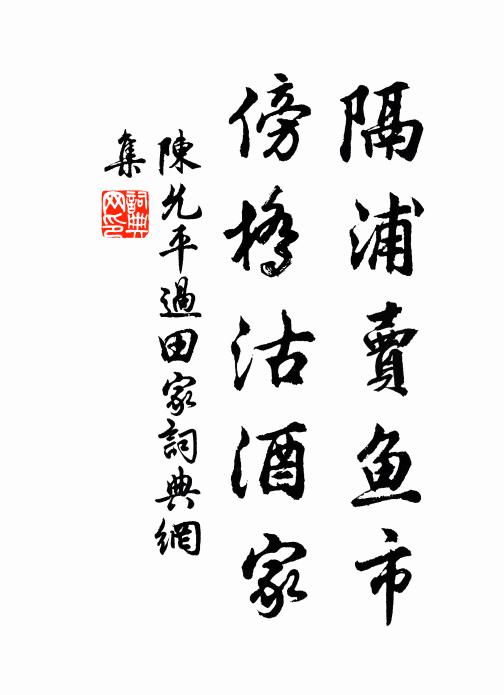 隔浦賣魚市
傍橋沽酒家
陳允平過田家詞典網
集
詞典
网印